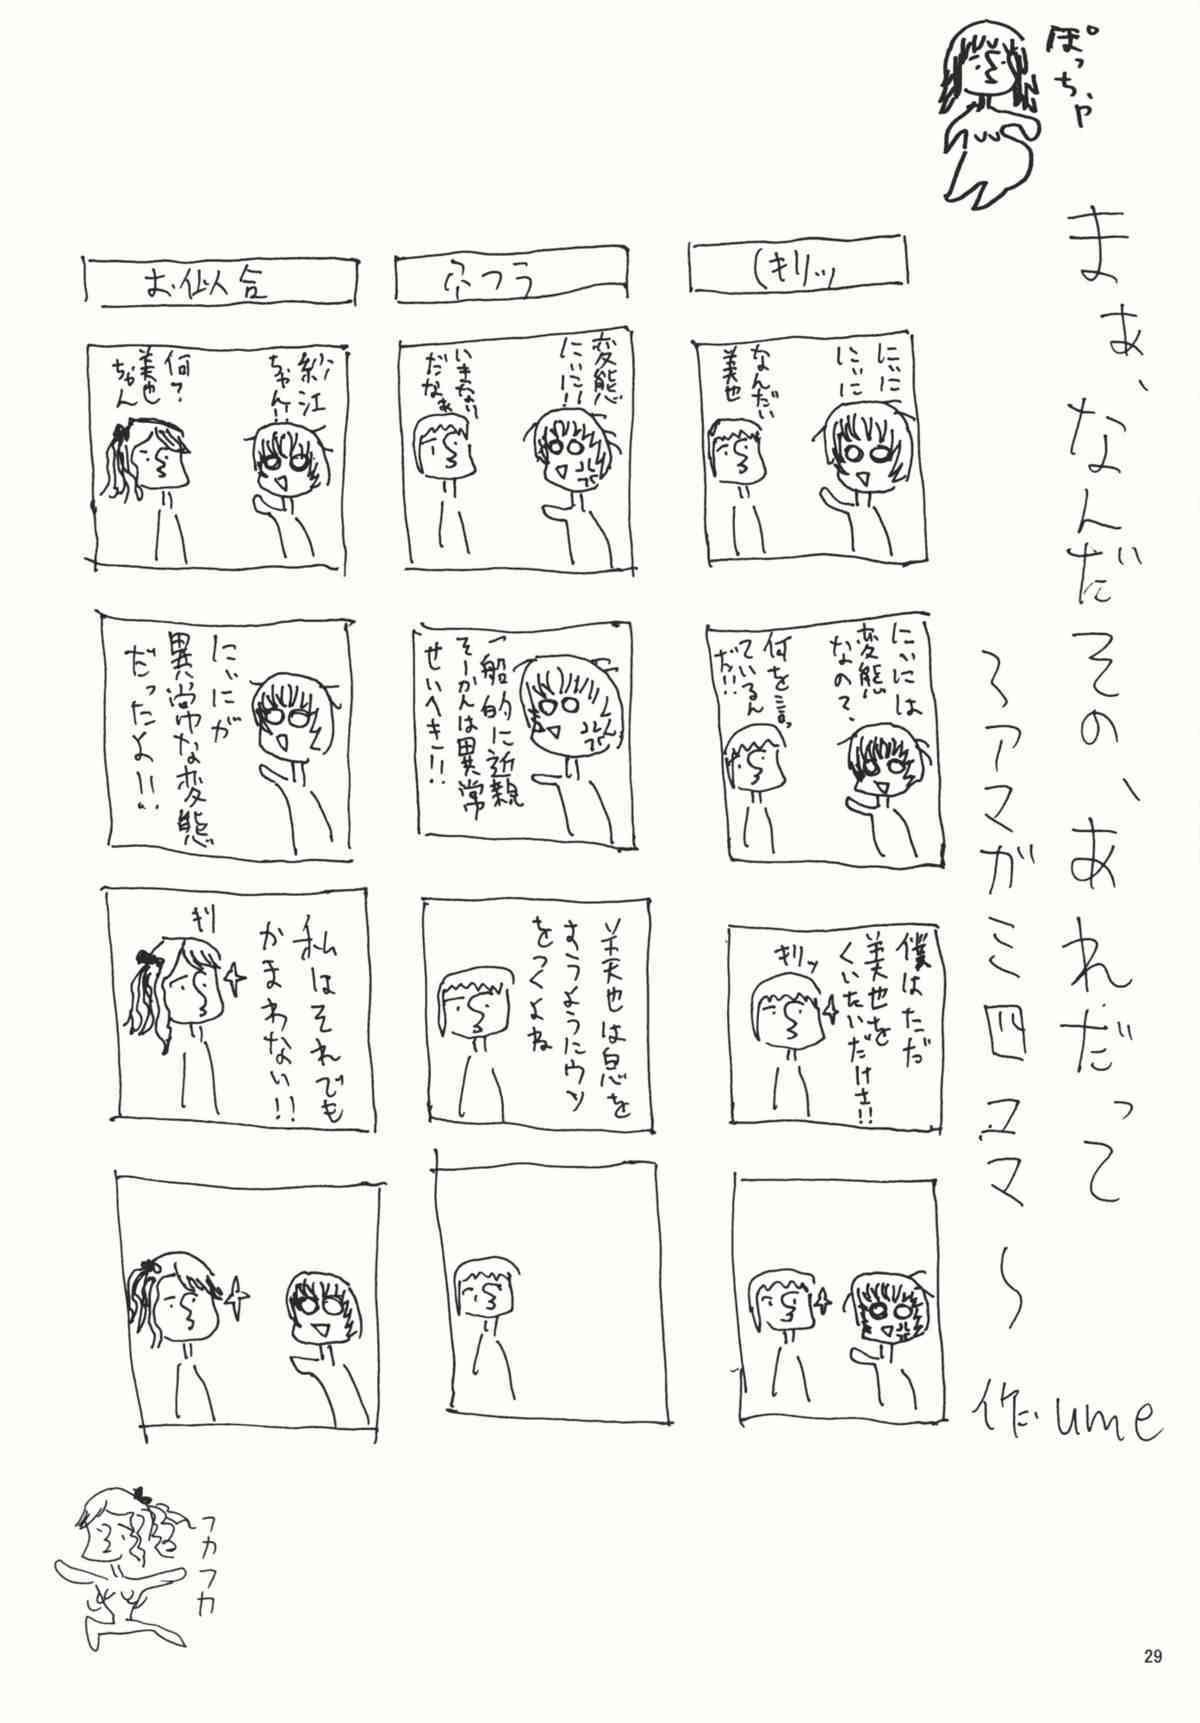 ぽっちゃ
まぁ、なんだその、あれだって
～アマガミ四コマ～
作だ ume
(キリッ
にぃに
にぃに
なんだい
美也
にぃには
変態
なので、
何を言っ
ているん
だ!!
僕はただ
美也を
くいたいだけさ!!
キリッ
ふつう
変態
にぃに!!
いきなり
だなぁ
一般的に近親
そーかんは異常
せいへき!!
美也は息を
すうようにウソ
をつくよね
お似合
紗江
ちゃん!!
何?
美也
ちゃん
にぃにが
異常な変態
だったよ!!
私はそれでも
かまわない!!
キリ
フカフカ
29